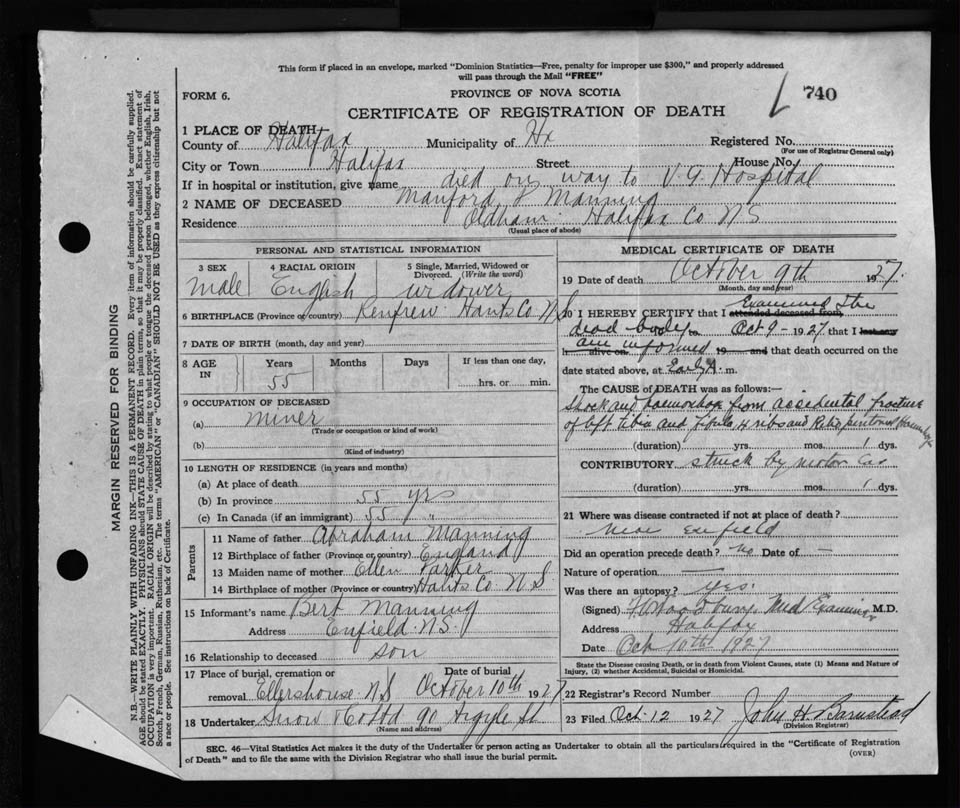 This form if placed in an envelope, marked "Dominion Statistics—Free, penalty for improper use $300," and properly addressed
will pass through the Mail "FREE"
FORM 6.
PROVINCE OF NOVA SCOTIA
740
CERTIFICATE OF REGISTRATION OF DEATH
1 PLACE OF DEATH
County of Halifax Municipality of Hx Registered No.
(For use of Registrar General only)
City or Town Halifax Street House No.
If in hospital or institution, give name died on way to V.G. Hospital
2 NAME OF DECEASED Manford Manning
Residence Oldham Halifax Co N S
(Usual place of abode)
PERSONAL AND STATISTICAL INFORMATION
3 SEX 4 RACIAL ORIGIN 5 Single, Married, Widowed or Divorced. (Write the word)
Male English widower
6 BIRTHPLACE (Province or country) Renfrew Hants Co N S
7 DATE OF BIRTH (month, day and year)
8 AGE IN Years Months Days If less than one day,
55 hrs. or min.
9 OCCUPATION OF DECEASED
(a) miner
(Trade or occupation or kind of work)
(b)
(Kind of industry)
10 LENGTH OF RESIDENCE (in years and months)
(a) At place of death
(b) In province 55 yrs
(c) In Canada (if an immigrant) 55 "
Parents
11 Name of father Abraham Manning
12 Birthplace of father (Province or country) England
13 Maiden name of mother Ellen Parker
14 Birthplace of mother (Province or country) Hants Co N.S.
15 Informant's name Bert Manning
Address Enfield N.S.
16 Relationship to deceased son
17 Place of burial, cremation or removal Date of burial
Ellershouse N S October 10th 1927
18 Undertaker Snow & Co Ltd 90 Argyle St
(Name and address)
MEDICAL CERTIFICATE OF DEATH
19 Date of death October 9th 1927.
(Month, day and year)
Examined the
20 I HEREBY CERTIFY that I attended deceased from
dead body to Oct 9 - 1927 that I last saw
am informed
h alive on 19 and that death occurred on the
date stated above, at Early A. m.
The CAUSE of DEATH was as follows:—
Shock and haemorrhage from accidental fracture
of left tibia and fibula 4 ribs and Retroperitoneal Haemorrhage
(duration) yrs. mos. 1 dys.
CONTRIBUTORY struck by motor Car
(duration) yrs. mos. 1 dys.
21 Where was disease contracted if not at place of death?
near Enfield
Did an operation precede death? no Date of —
Nature of operation —
Was there an autopsy? yes.
(Signed) Med Examiner M.D.
Address Halifax
Date Oct 10th 1927
State the Disease causing Death, or in death from Violent Causes, state (1) Means and Nature of
Injury, (2) whether Accidental, Suicidal or Homicidal.
22 Registrar's Record Number
23 Filed Oct 12 1927 John H. Barnstead
(Division Registrar)
SEC. 46—Vital Statistics Act makes it the duty of the Undertaker or person acting as Undertaker to obtain all the particulars required in the "Certificate of Registration
of Death" and to file the same with the Division Registrar who shall issue the burial permit.
(OVER)
MARGIN RESERVED FOR BINDING
N.B.—WRITE PLAINLY WITH UNFADING INK—THIS IS A PERMANENT RECORD. Every item of information should be carefully supplied.
AGE should be stated EXACTLY. PHYSICIANS should STATE CAUSE OF DEATH in plain terms, so that it may be properly classified. Exact statement of
OCCUPATION is very important. RACIAL ORIGIN will be described by stating to what people or tongue the deceased person belonged, whether English, Irish,
Scotch, French, German, Russian, Ruthenian, etc. The terms "AMERICAN" or "CANADIAN" SHOULD NOT BE USED as they express citizenship but not
a race or people. See instructions on back of Certificate.